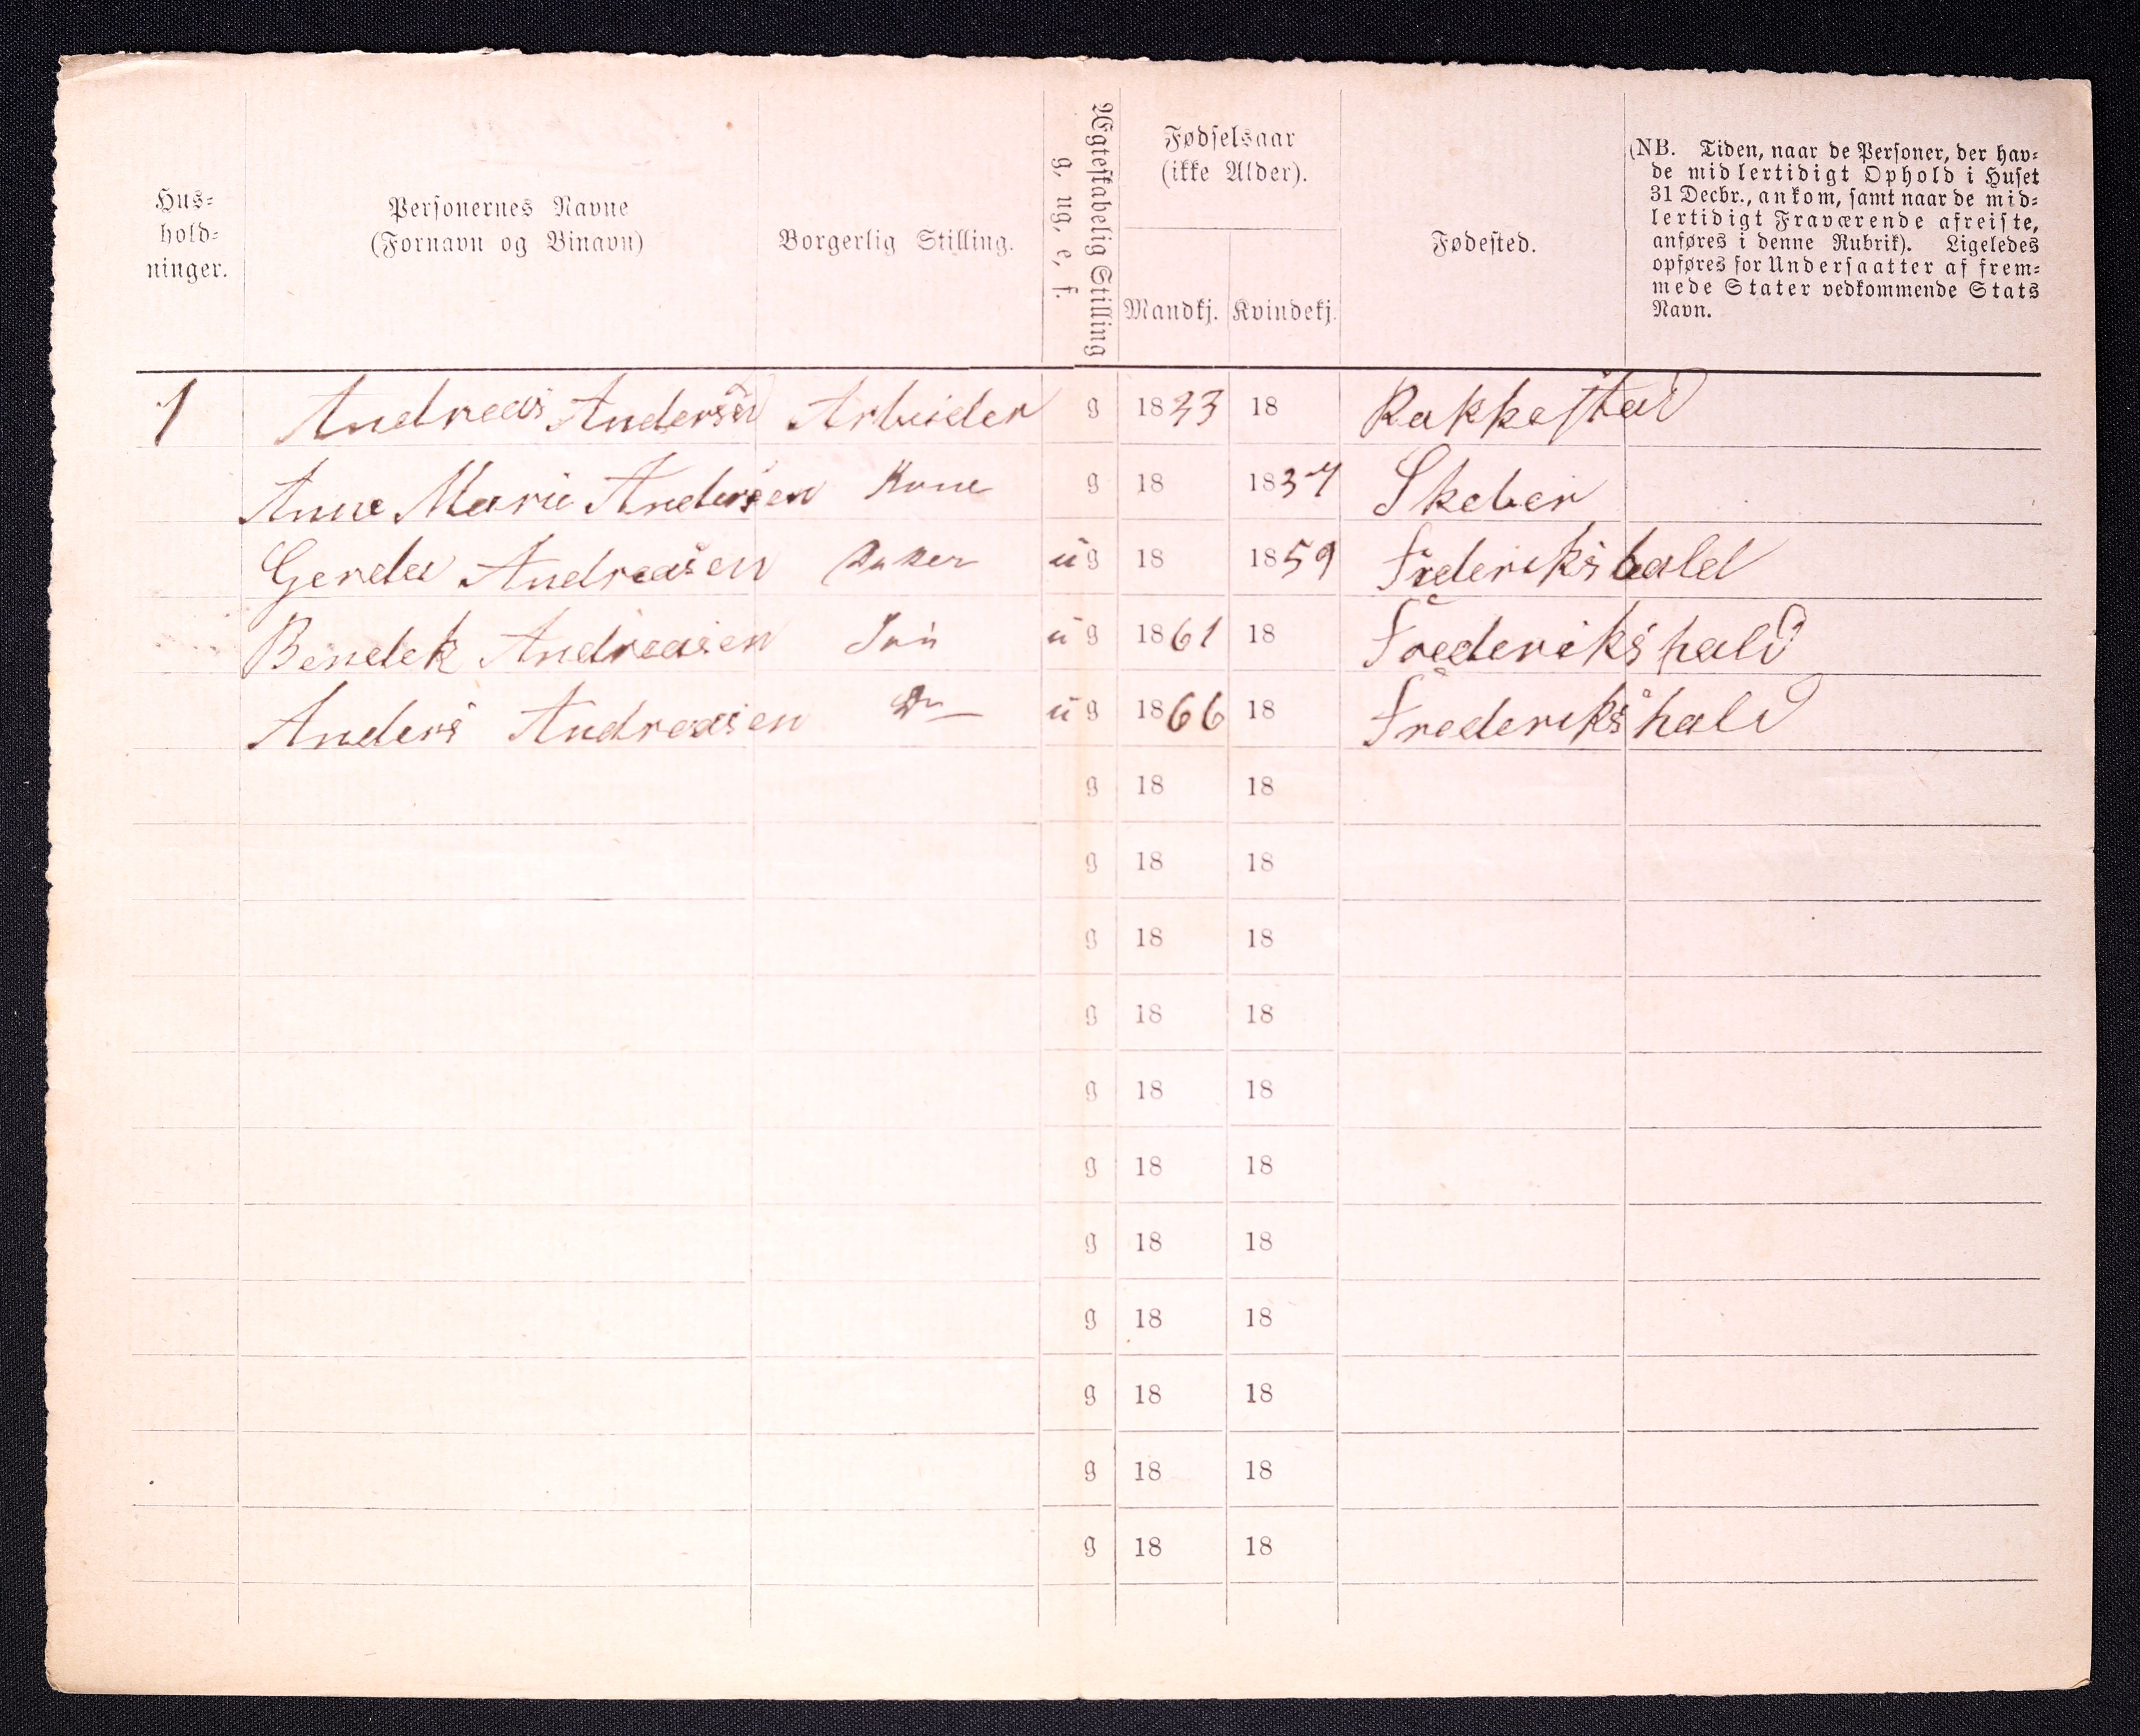 Hus-
hold-
ninger.
Personernes Navne
(Fornavn og Binavn)
Borgerlig Stilling.
Ægteskabelig Stilling
g, ug, e, f.
Fødselsaar
(ikke Alder).
Mandkj. Kvindekj.
Fødested.
(NB. Tiden, naar de Personer, der hav-
de midlertidigt Ophold i Huset
31 Decbr., ankom, samt naar de mid-
lertidigt Fraværende afreiste,
anføres i denne Rubrik). Ligeledes
opføres for Undersaatter af frem-
mede Stater vedkommende Stats
Navn.
1 Andreas Andersen Arbeider g 1833 18 Rakkestad
Anne Marie Andersen Kone g 18 1837 Skeber
Gerda Andreasen ug 18 1859 Frederikshald
Bendek Andreasen ug 1861 18 Frederikshald
Anders Andreasen Do ug 1866 18 Frederikshald
g 18 18
g 18 18
g 18 18
g 18 18
g 18 18
g 18 18
g 18 18
g 18 18
g 18 18
g 18 18
g 18 18